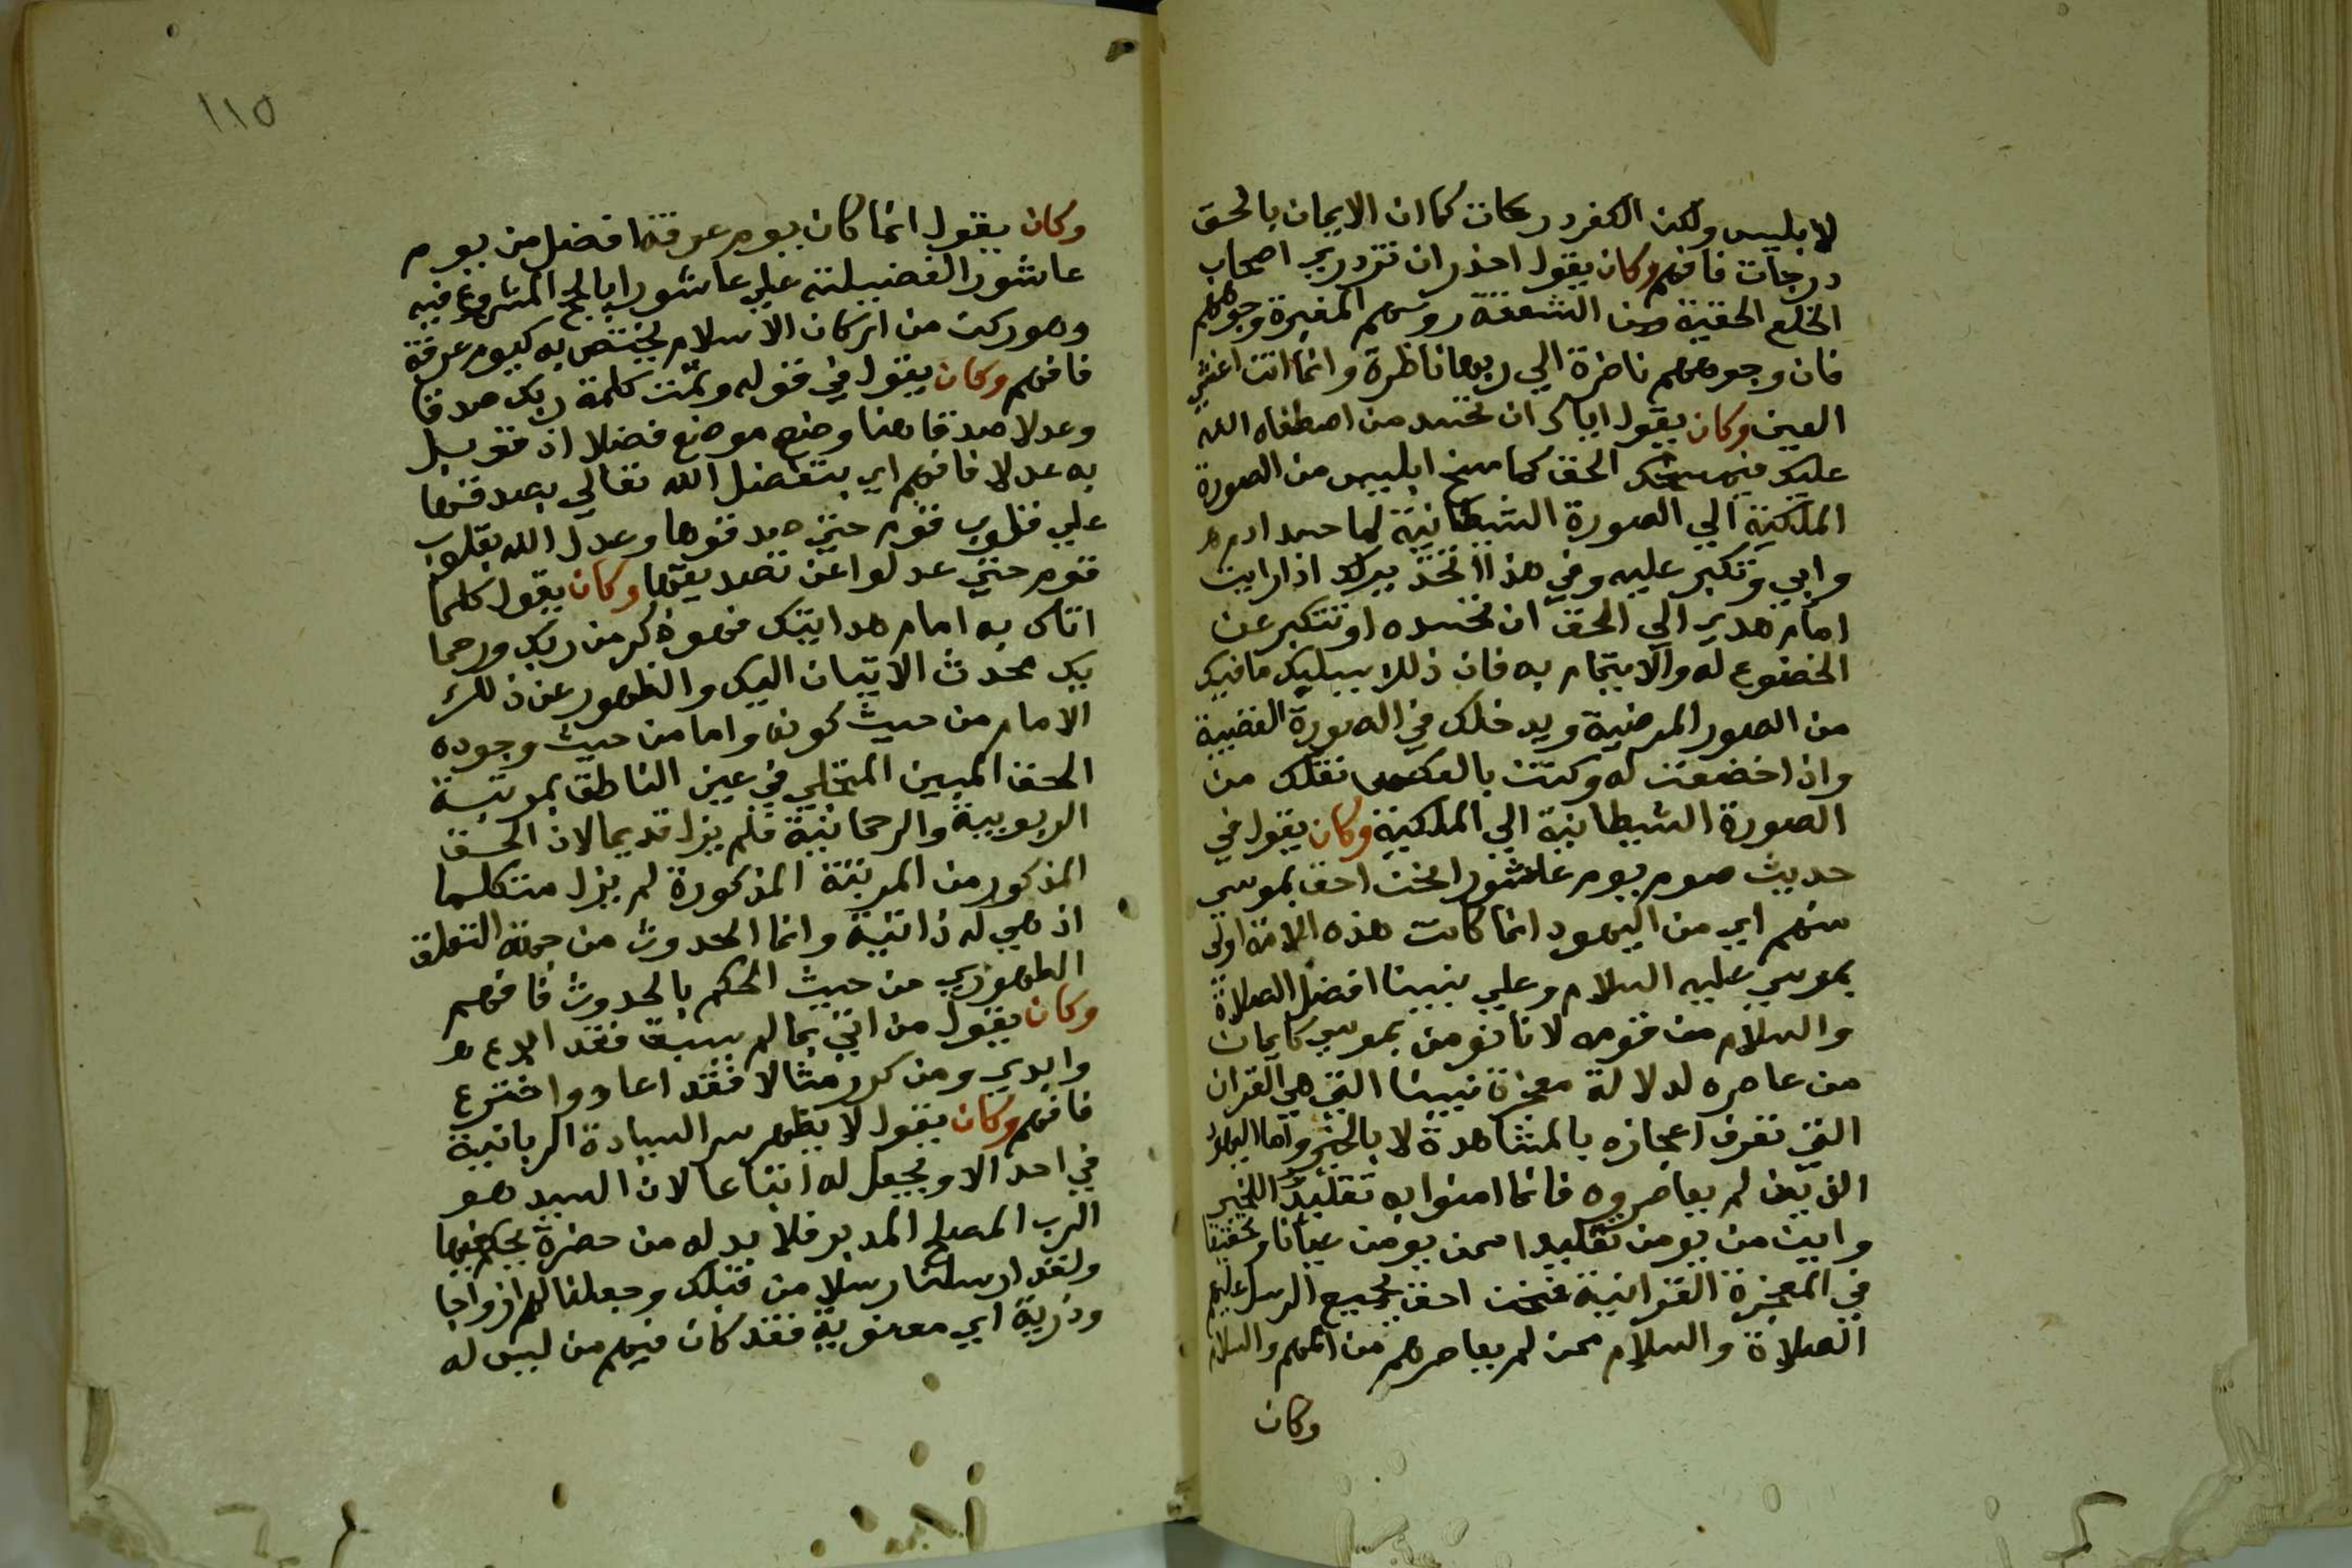 لابليس ولكن الكفر دركات كما ان الايمان بالحق
درجات فافهم وكان يقول احذر ان تزدري اصحاب
الخلع الحقية من الشعثة روسهم المغبرة وجوههم
فان وجوههم ناضرة الي ربها ناظرة وانما انت اعشي
العين وكان يقول اياك ان تحسد من اصطفاه الله
عليك فيمسخك الحق كما مسخ ابليس من الصورة
الملكية الي الصورة الشيطانية لما حسد ادم
وابي وتكبر عليه وفي هذا تحذير لك اذا رايت
امام هدي الي الحق ان تحسده او تتكبر عن
الخضوع له والايتمام به فان ذلك يسلبك ما فيك
من الصور المرضية ويدخلك في الصورة الغضبية
وان اخضعت له وكنت بالعكس نقلك من
الصورة الشيطانية الي الملكية وكان يقول في
حديث صوم يوم عاشورا نحن احق بموسي
منهم اي من اليهود انما كانت هذه الامة اولي
بموسي عليه السلام وعلي نبينا افضل الصلاة
والسلام من قومه لانا نومن بموسي كايمان
من عاصره لدلالة معجزة نبينا التي هي القران
التي نعرف اعجازه بالمشاهدة لا بالخبر واما اليهود
الذين لم يعاصروه فانما امنوا به تقليدا للخبر
واين من يومن تقليدا ممن يومن عيانا وتحقيقا
في المعجزة القرانية فنحن احق بجميع الرسل عليهم
الصلاة والسلام ممن لم يعاصرهم من اممهم والسلام
وكان
١١٥
وكان يقول انما كان يوم عرفة افضل من يوم
عاشورا لفضيلته علي عاشورا بالحج المشروع فيه
وهو ركن من اركان الاسلام يختص به كيوم عرفة
فافهم وكان يقول في قوله وتمت كلمة ربك صدقا
وعدلا صدقا هنا وضع موضع فضلا اذ قوبل
به عدلا فافهم اي بتفضل الله تعالي بصدقها
علي قلوب قوم حتي صدقوها وعدل الله بقلوب
قوم حتي عدلوا عن تصديقها وكان يقول كلما
اتاك به امام هدايتك فهو ذكر من ربك ورحما
بك محدث الاتيان اليك والظهور عن ذلك
الامام من حيث كونه واما من حيث وجوده
الحق المبين المتجلي في عين الناطق بمرتبة
الربوبية والرحمانية فلم يزل قديما لان الحق
المذكور من المرتبة المذكورة لم يزل متكلما
اذ هي له ذاتية وانما الحدوث من جهة التعلق
الظهوري من حيث الحكم بالحدوث فافهم
وكان يقول من اتي بما لم يسبق فقد ابدع
وابدي ومن كرر مثالا فقد اعاد واخترع
فافهم وكان يقول لا يظهر سر السيادة الربانية
في احد الا ويجعل له اتباعا لان السيد هو
الرب المصلح المدبر فلا بد له من حضرة يحكم فيها
ولقد ارسلنا رسلا من قبلك وجعلنا لهم ازواجا
وذرية اي معنوية فقد كان فيهم من ليس له